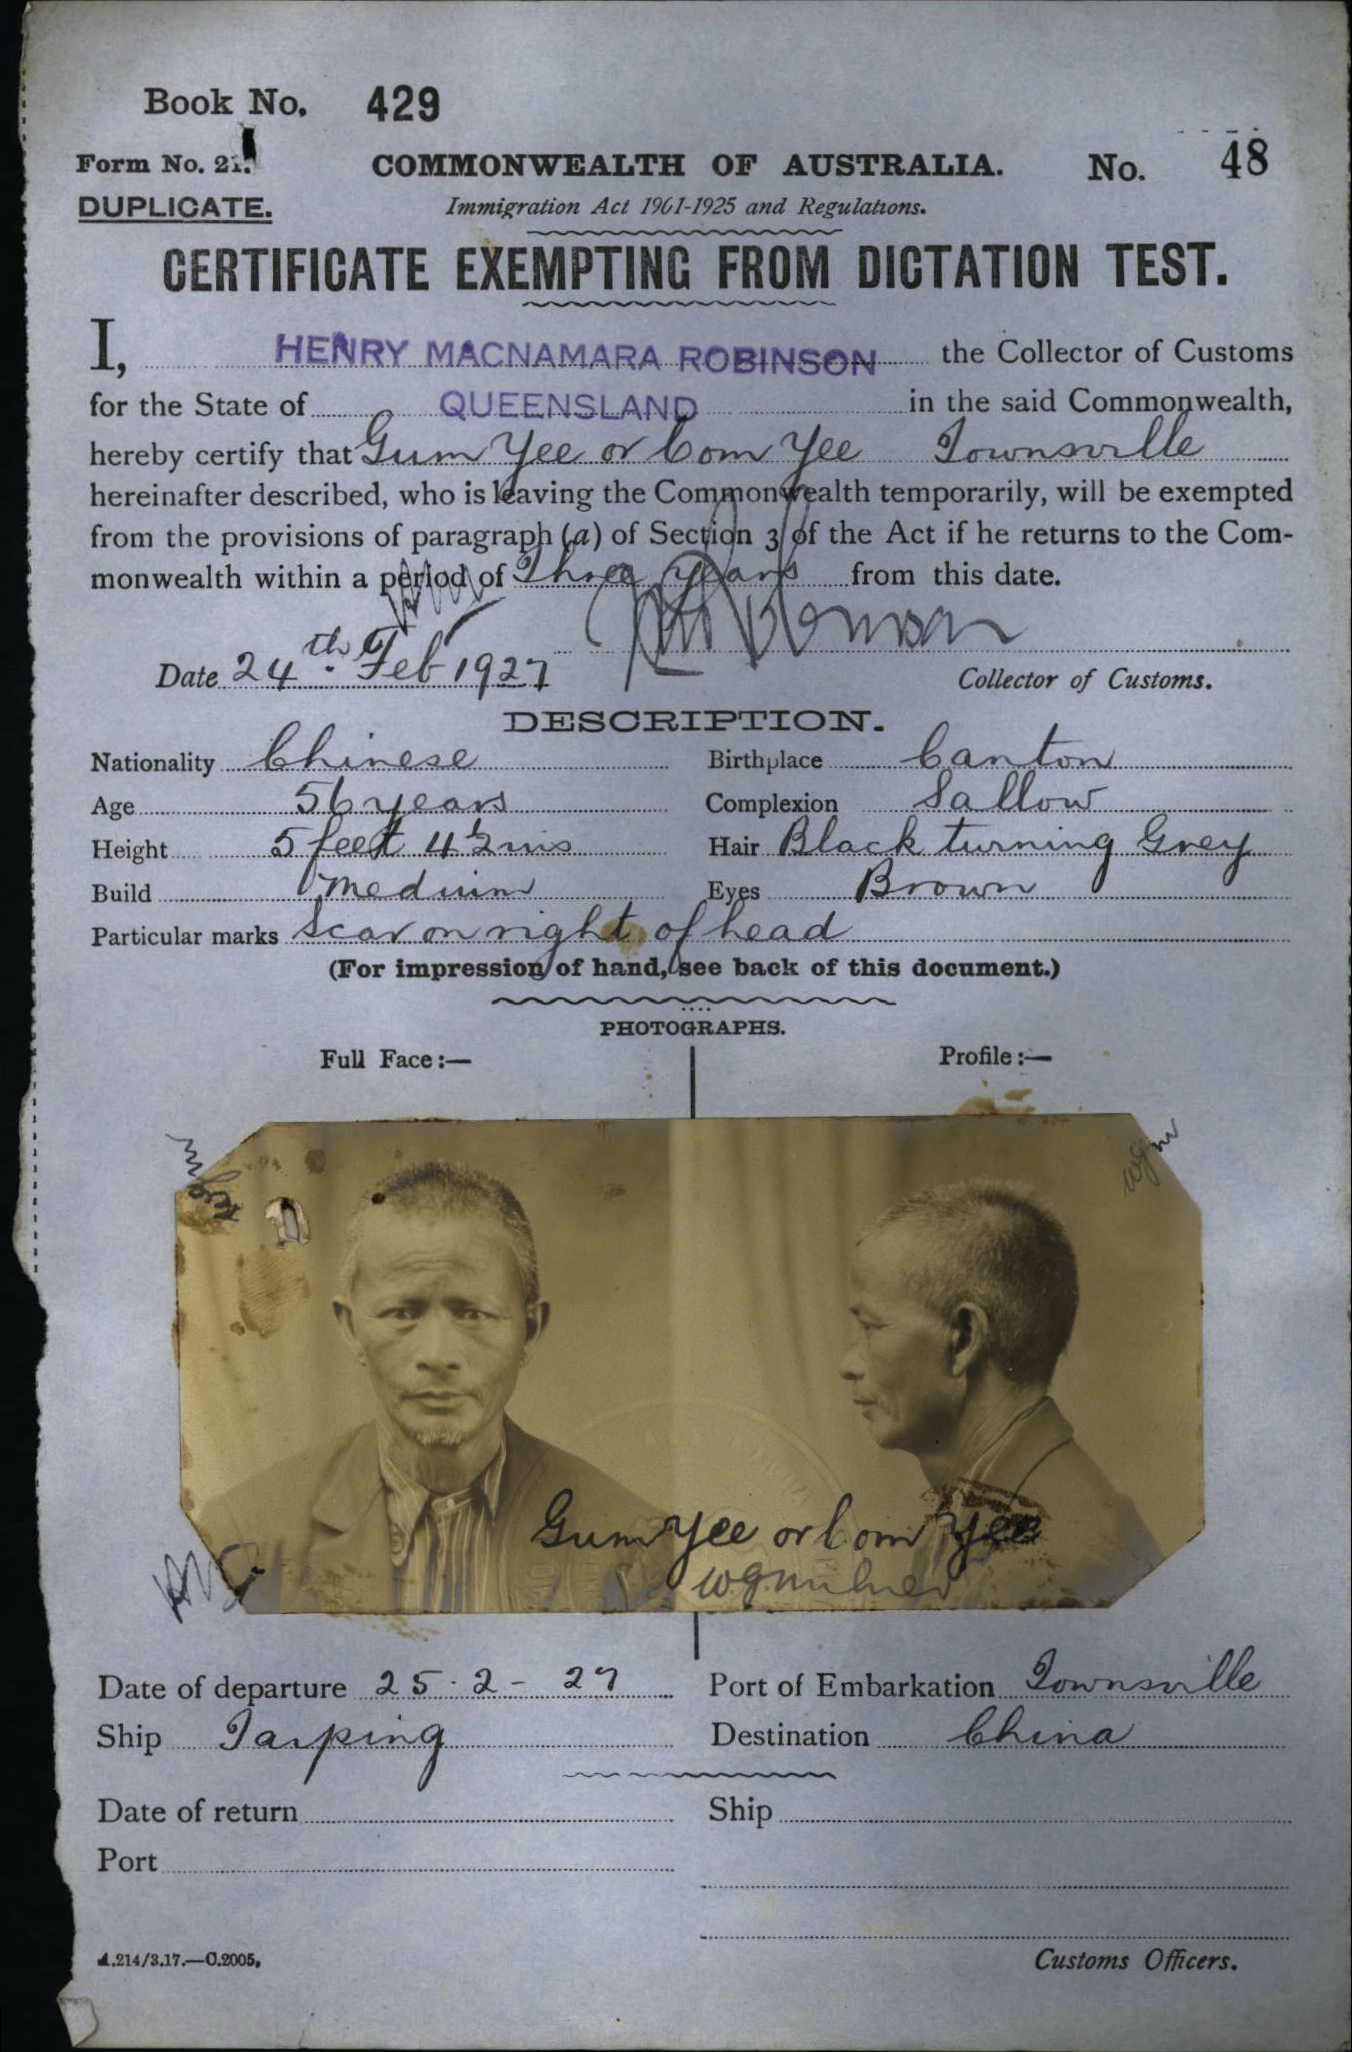 Book No. 429
Form No. 21.
COMMONWEALTH OF AUSTRALIA.
No. 48
DUPLICATE.
Immigration Act 1901-1925 and Regulations.
CERTIFICATE EXEMPTING FROM DICTATION TEST.
I, HENRY MACNAMARA ROBINSON the Collector of Customs
for the State of QUEENSLAND in the said Commonwealth,
hereby certify that Gum Yee or Com Yee Townsville
hereinafter described, who is leaving the Commonwealth temporarily, will be exempted
from the provisions of paragraph (a) of Section 3 of the Act if he returns to the Com-
monwealth within a period of Three Years from this date.
Date 24th Feb 1927
Collector of Customs.
DESCRIPTION.
Nationality Chinese Birthplace Canton
Age 56 years Complexion Sallow
Height 5 feet 4 1/2 ins Hair Black turning Grey
Build Medium Eyes Brown
Particular marks Scar on right of head
(For impression of hand, see back of this document.)
PHOTOGRAPHS.
Full Face:— Profile:—
wgm
wgm
Gum Yee or Com Yee
W.G. Milner
Date of departure 25-2-27 Port of Embarkation Townsville
Ship Taiping Destination China
Date of return Ship
Port
A.214/3.17.—C.2005.
Customs Officers.